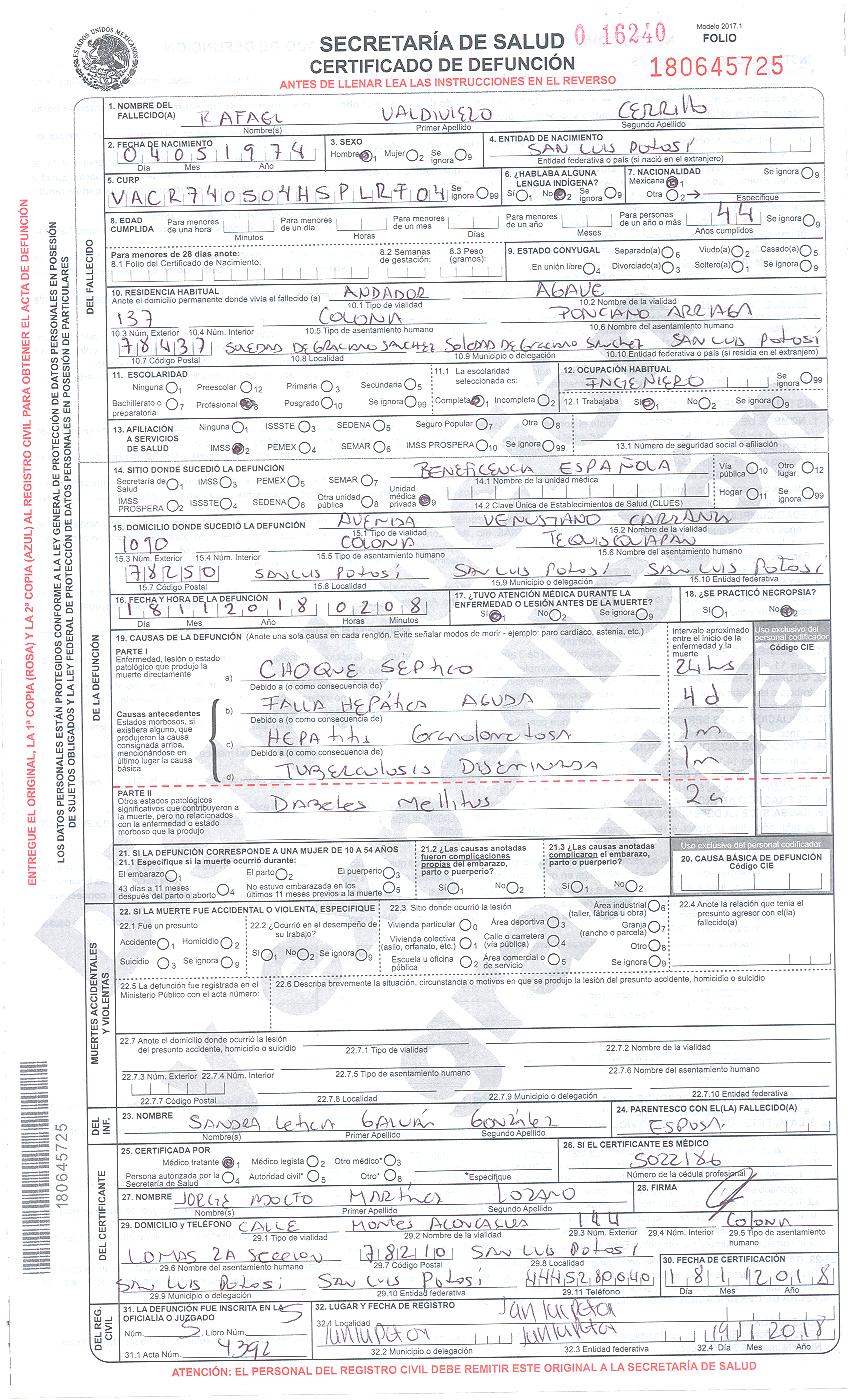 ESTADOS UNIDOS MEXICANOS
SECRETARÍA DE SALUD
CERTIFICADO DE DEFUNCIÓN
ANTES DE LLENAR LEA LAS INSTRUCCIONES EN EL REVERSO
0 16240
Modelo 2017.1
FOLIO
180645725
ENTREGUE EL ORIGINAL, LA 1ª COPIA (ROSA) Y LA 2ª COPIA (AZUL) AL REGISTRO CIVIL PARA OBTENER EL ACTA DE DEFUNCIÓN
LOS DATOS PERSONALES ESTÁN PROTEGIDOS CONFORME A LA LEY GENERAL DE PROTECCIÓN DE DATOS PERSONALES EN POSESIÓN
DE SUJETOS OBLIGADOS Y LA LEY FEDERAL DE PROTECCIÓN DE DATOS PERSONALES EN POSESIÓN DE PARTICULARES
180645725
DEL FALLECIDO
1. NOMBRE DEL FALLECIDO(A) RAFAEL VALDIVIEZO CERRILLO
Nombre(s) Primer Apellido Segundo Apellido
2. FECHA DE NACIMIENTO 04051974
Día Mes Año
3. SEXO
Hombre 1 Mujer 2 Se ignora 9
4. ENTIDAD DE NACIMIENTO SAN LUIS POTOSÍ
Entidad federativa o país (si nació en el extranjero)
5. CURP
VACR740504HSPLRF04 Se ignora 99
6. ¿HABLABA ALGUNA LENGUA INDÍGENA?
Sí 1 No 2 Se ignora 9
7. NACIONALIDAD Se ignora 9
Mexicana 1
Otra 2 Especifique
8. EDAD CUMPLIDA
Para menores de una hora Minutos
Para menores de un día Horas
Para menores de un mes Días
Para menores de un año Meses
Para personas de un año o más 44 Años cumplidos Se ignora 9
Para menores de 28 días anote:
8.1 Folio del Certificado de Nacimiento:
8.2 Semanas de gestación:
8.3 Peso (gramos):
9. ESTADO CONYUGAL Separado(a) 6 Viudo(a) 2 Casado(a) 5
En unión libre 4 Divorciado(a) 3 Soltero(a) 1 Se ignora 9
10. RESIDENCIA HABITUAL ANDADOR AGAVE
Anote el domicilio permanente donde vivía el fallecido (a) 10.1 Tipo de vialidad 10.2 Nombre de la vialidad
137 COLONIA PONCIANO ARRIAGA
10.3 Núm. Exterior 10.4 Núm. Interior 10.5 Tipo de asentamiento humano 10.6 Nombre del asentamiento humano
78437 SOLEDAD DE GRACIANO SANCHEZ SOLEDAD DE GRACIANO SANCHEZ SAN LUIS POTOSÍ
10.7 Código Postal 10.8 Localidad 10.9 Municipio o delegación 10.10 Entidad federativa o país (si residía en el extranjero)
11. ESCOLARIDAD
Ninguna 1 Preescolar 12 Primaria 3 Secundaria 5
Bachillerato o preparatoria 7 Profesional 8 Posgrado 10 Se ignora 99
11.1 La escolaridad seleccionada es:
Completa 1 Incompleta 2
12. OCUPACIÓN HABITUAL
INGENIERO Se ignora 99
12.1 Trabajaba Sí 1 No 2 Se ignora 9
13. AFILIACIÓN A SERVICIOS DE SALUD
Ninguna 1 ISSSTE 3 SEDENA 5 Seguro Popular 7 Otra 8
IMSS 2 PEMEX 4 SEMAR 6 IMSS PROSPERA 10 Se ignora 99
13.1 Número de seguridad social o afiliación
DE LA DEFUNCIÓN
14. SITIO DONDE SUCEDIÓ LA DEFUNCIÓN BENEFICENCIA ESPAÑOLA
Secretaría de Salud 1 IMSS 3 PEMEX 5 SEMAR 7 Unidad médica privada 9
14.1 Nombre de la unidad médica
IMSS PROSPERA 2 ISSSTE 4 SEDENA 6 Otra unidad pública 8
14.2 Clave Única de Establecimientos de Salud (CLUES)
Vía pública 10 Otro lugar 12
Hogar 11 Se ignora 99
15. DOMICILIO DONDE SUCEDIÓ LA DEFUNCIÓN AVENIDA VENUSTIANO CARRANZA
15.1 Tipo de vialidad 15.2 Nombre de la vialidad
1090 COLONIA TEQUISQUIAPAN
15.3 Núm. Exterior 15.4 Núm. Interior 15.5 Tipo de asentamiento humano 15.6 Nombre del asentamiento humano
78250 SAN LUIS POTOSÍ SAN LUIS POTOSÍ SAN LUIS POTOSÍ
15.7 Código Postal 15.8 Localidad 15.9 Municipio o delegación 15.10 Entidad federativa
16. FECHA Y HORA DE LA DEFUNCIÓN
18112018 0208
Día Mes Año Horas Minutos
17. ¿TUVO ATENCIÓN MÉDICA DURANTE LA ENFERMEDAD O LESIÓN ANTES DE LA MUERTE?
Sí 1 No 2 Se ignora 9
18. ¿SE PRACTICÓ NECROPSIA?
Sí 1 No 2
19. CAUSAS DE LA DEFUNCIÓN (Anote una sola causa en cada renglón. Evite señalar modos de morir - ejemplo: paro cardíaco, astenia, etc.)
Intervalo aproximado entre el inicio de la enfermedad y la muerte
Uso exclusivo del personal codificador
Código CIE
PARTE I
Enfermedad, lesión o estado patológico que produjo la muerte directamente
a) CHOQUE SÉPTICO 24 hs
Debido a (o como consecuencia de)
b) FALLA HEPÁTICA AGUDA 4 d
Debido a (o como consecuencia de)
Causas antecedentes
Estados morbosos, si existiera alguno, que produjeron la causa consignada arriba, mencionándose en último lugar la causa básica
c) HEPATITIS Granulomatosa 1m
Debido a (o como consecuencia de)
d) TUBERCULOSIS DISEMINADA 1m
PARTE II
Otros estados patológicos significativos que contribuyeron a la muerte, pero no relacionados con la enfermedad o estado morboso que la produjo
Diabetes Mellitus 2a
21. SI LA DEFUNCIÓN CORRESPONDE A UNA MUJER DE 10 A 54 AÑOS
21.1 Especifique si la muerte ocurrió durante:
El embarazo 1 El parto 2 El puerperio 3
43 días a 11 meses después del parto o aborto 4 No estuvo embarazada en los últimos 11 meses previos a la muerte 5
21.2 ¿Las causas anotadas fueron complicaciones propias del embarazo, parto o puerperio?
Sí 1 No 2
21.3 ¿Las causas anotadas complicaron el embarazo, parto o puerperio?
Sí 1 No 2
Uso exclusivo del personal codificador
20. CAUSA BÁSICA DE DEFUNCIÓN
Código CIE
MUERTES ACCIDENTALES Y VIOLENTAS
22. SI LA MUERTE FUE ACCIDENTAL O VIOLENTA, ESPECIFIQUE
22.1 Fue un presunto
Accidente 1 Homicidio 2
Suicidio 3 Se ignora 9
22.2 ¿Ocurrió en el desempeño de su trabajo?
Sí 1 No 2 Se ignora 9
22.3 Sitio donde ocurrió la lesión
Vivienda particular 0 Área deportiva 3 Área industrial (taller, fábrica u obra) 6
Vivienda colectiva (asilo, orfanato, etc.) 1 Calle o carretera (vía pública) 4 Granja (rancho o parcela) 7
Escuela u oficina pública 2 Área comercial o de servicio 5 Otro 8
Se ignora 9
22.4 Anote la relación que tenía el presunto agresor con el(la) fallecido(a)
22.5 La defunción fue registrada en el Ministerio Público con el acta número:
22.6 Describa brevemente la situación, circunstancia o motivos en que se produjo la lesión del presunto accidente, homicidio o suicidio
22.7 Anote el domicilio donde ocurrió la lesión del presunto accidente, homicidio o suicidio
22.7.1 Tipo de vialidad 22.7.2 Nombre de la vialidad
22.7.3 Núm. Exterior 22.7.4 Núm. Interior 22.7.5 Tipo de asentamiento humano 22.7.6 Nombre del asentamiento humano
22.7.7 Código Postal 22.7.8 Localidad 22.7.9 Municipio o delegación 22.7.10 Entidad federativa
DEL INF.
23. NOMBRE SANDRA Leticia GALVÁN GONZÁLEZ
Nombre(s) Primer Apellido Segundo Apellido
24. PARENTESCO CON EL(LA) FALLECIDO(A)
ESPOSA
DEL CERTIFICANTE
25. CERTIFICADA POR
Médico tratante 1 Médico legista 2 Otro médico 3
Persona autorizada por la Secretaría de Salud 4 Autoridad civil* 5 Otro* 8 *Especifique
26. SI EL CERTIFICANTE ES MÉDICO
5022186
Número de cédula profesional
27. NOMBRE MARTÍNEZ LOZANO
Nombre(s) Primer Apellido Segundo Apellido
28. FIRMA
29. DOMICILIO Y TELÉFONO CALLE MONTES ACONCAGUA 144 COLONIA
29.1 Tipo de vialidad 29.2 Nombre de la vialidad 29.3 Núm. Exterior 29.4 Núm. Interior 29.5 Tipo de asentamiento humano
LOMAS 2A SECCION 78210 SAN LUIS POTOSÍ
29.6 Nombre del asentamiento humano 29.7 Código Postal 29.8 Localidad
SAN LUIS POTOSÍ SAN LUIS POTOSÍ 4445280040
29.9 Municipio o delegación 29.10 Entidad federativa 29.11 Teléfono
30. FECHA DE CERTIFICACIÓN
18112018
Día Mes Año
DEL REG. CIVIL
31. LA DEFUNCIÓN FUE INSCRITA EN LA OFICIALÍA O JUZGADO 5
Núm. 5 Libro Núm.
4392
31.1 Acta Núm.
32. LUGAR Y FECHA DE REGISTRO
32.1 Localidad
32.2 Municipio o delegación 32.3 Entidad federativa
19112018
32.4 Día Mes Año
ATENCIÓN: EL PERSONAL DEL REGISTRO CIVIL DEBE REMITIR ESTE ORIGINAL A LA SECRETARÍA DE SALUD